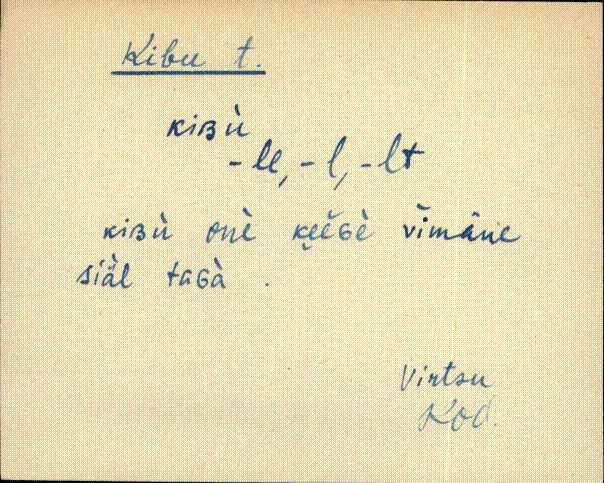 Kibu t.
kiʙù
-le, -l, -lt
kiʙù onè kḙèɢè vìmäne
siä̀l taɢà .
Virtsu
Kod.